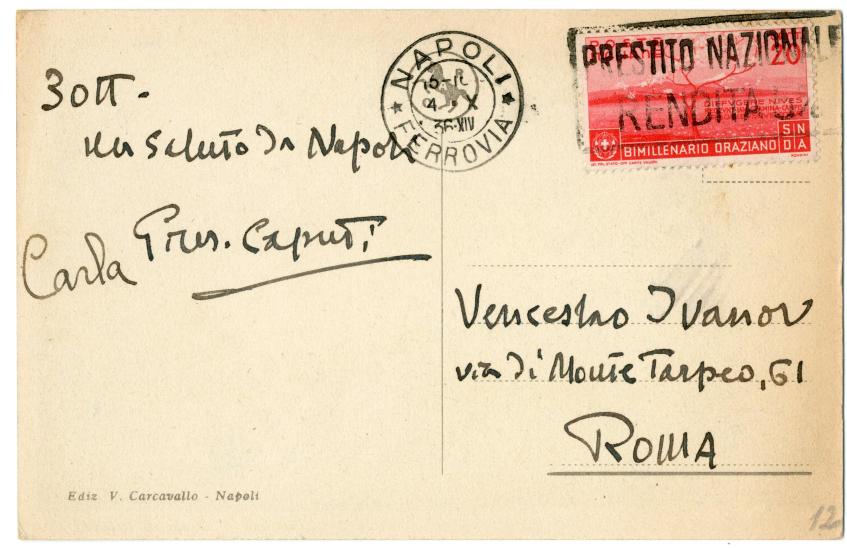 3 ott.
un saluto da Napoli
Carla Gius. Caputi
Ediz V. Carcavallo - Napoli
NAPOLI
4 · X
36·XIV
FERROVIA
PRESTITO NAZIONALE
RENDITA 5%
POSTE
20
DIFFVGERE NIVES
BIMILLENARIO ORAZIANO
Venceslao Ivanov
via di Monte Tarpeo, 61
ROMA
12